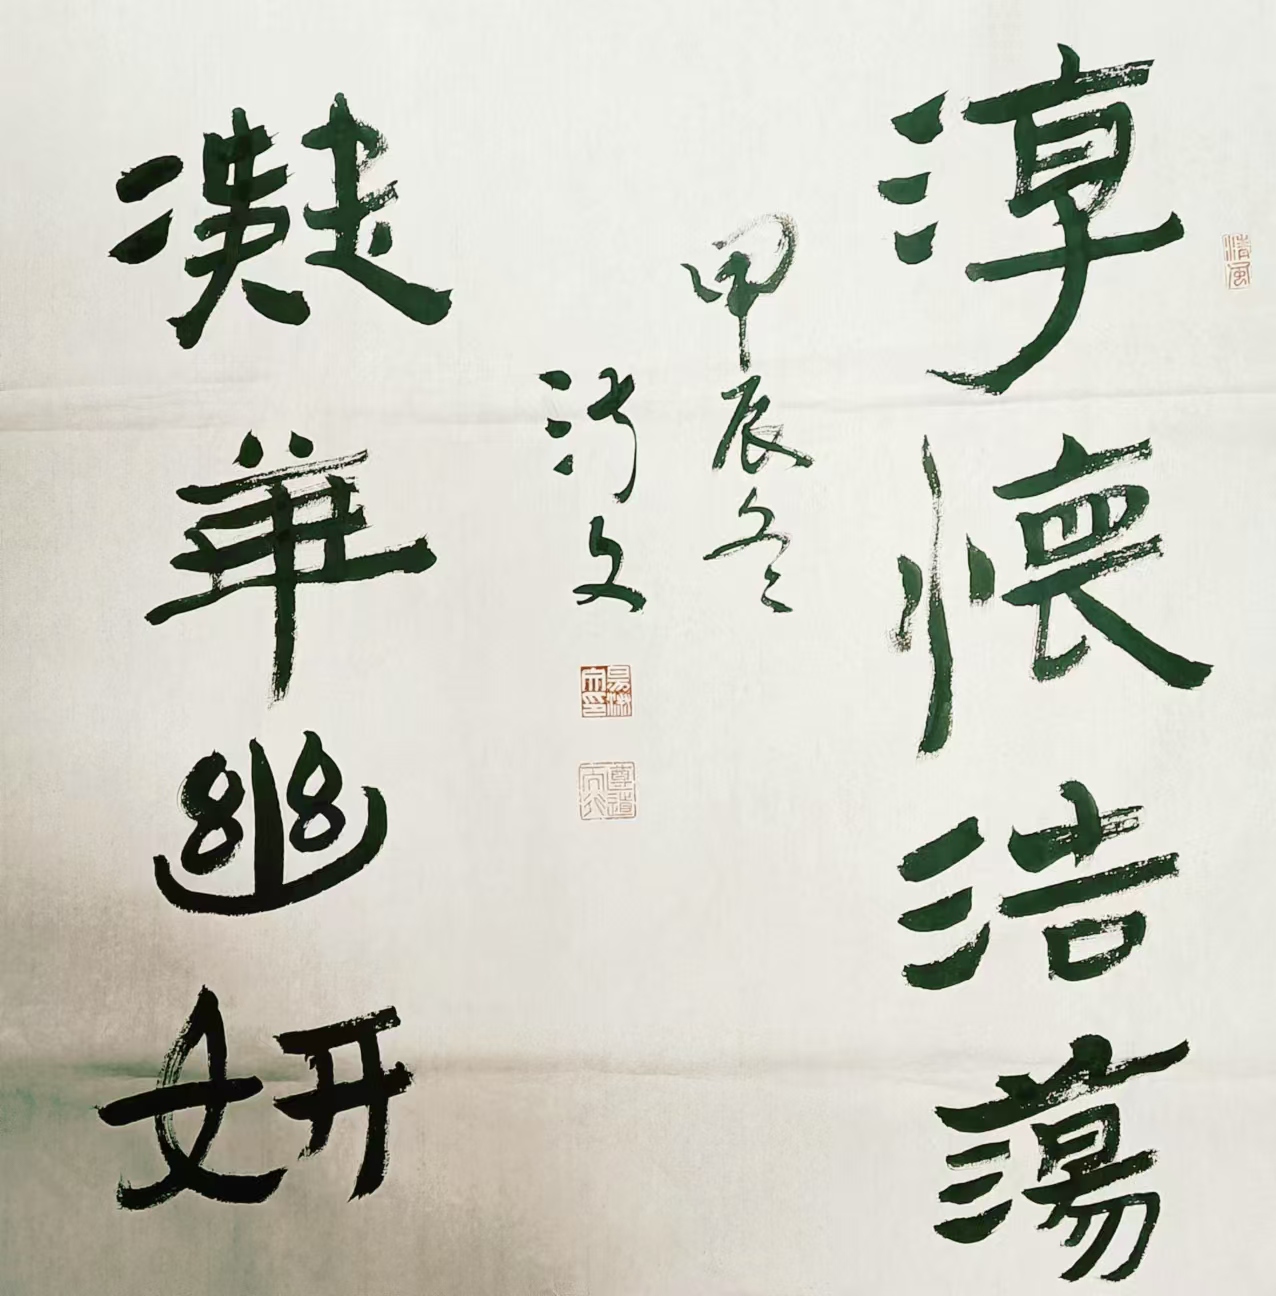 淳懷浩蕩
清風
甲辰冬
文
凝華幽妍